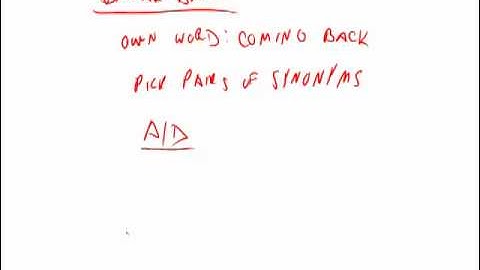 OWN WORD: COMING BACK
PICK PAIRS OF SYNONYMS
A/D